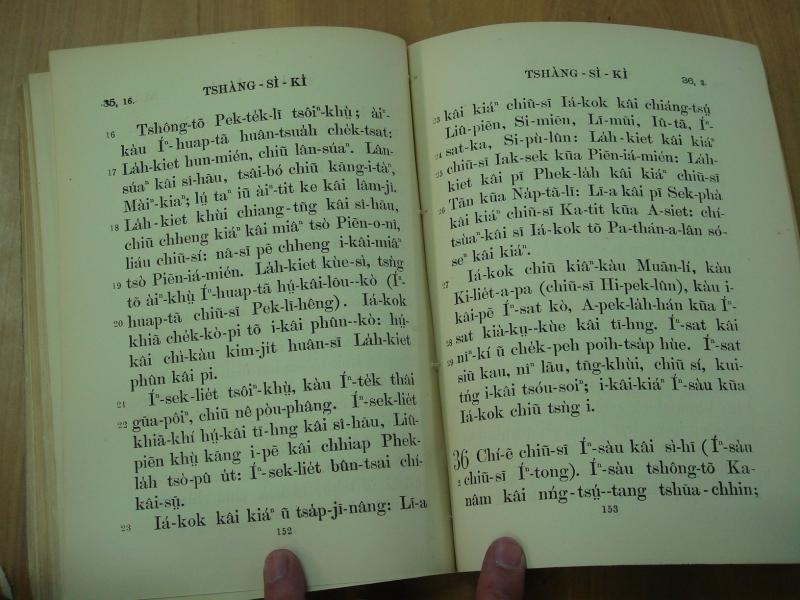 35, 16.
TSHÀNG-SÌ-KÌ
16 Tshông-tō Pek-te̍k-lī tsôiⁿ-khṳ̀; àiⁿ-
kàu Íⁿ-huap-tā huân-tsua̍h che̍k-tsat:
La̍h-kiet hun-mién, chiū lân-súaⁿ. Lân-
17 súaⁿ kâi sî-hāu, tsâi-bó chiū kāng-i-tàⁿ,
Màiⁿ-kiaⁿ; lṳ́ taⁿ iū àiⁿ-tit ke kâi lâm-jî.
18 La̍h-kiet khùi chiang-tn̄g kâi sî-hāu,
chiū chheng kiáⁿ kâi miâⁿ tsò Piēn-o-nî,
liáu chiū-sí: nā-sī pē chheng i-kâi-miâⁿ
19 tsò Piēn-iá-mién. La̍h-kiet kùe-sì, tsǹg
tō àiⁿ-khṳ̀ Íⁿ-huap-tā hṳ́-kâi-lou--kò (Íⁿ-
20 huap-tā chiū-sī Pek-lī-hêng). Iá-kok
khiā che̍k-kò-pi tō i-kâi phûn--kò: hṳ́-
kâi chì-kàu kim-jit huân-sī La̍h-kiet
phûn kâi pi.
21 Íⁿ-sek-lie̍t tsôiⁿ-khṳ̀, kàu Íⁿ-te̍k thâi
gūa-pôiⁿ, chiū nê pòu-phâng. Íⁿ-sek-lie̍t
22 khiā-khí hṳ́-kâi tī-hng kâi sî-hāu, Liû-
piēn khṳ̀ kāng i-pē kâi chhiap Phek-
la̍h tsò-pû u̍t: Íⁿ-sek-lie̍t bûn-tsai chí-
kâi-sṳ̄.
23 Iá-kok kâi kiáⁿ ũ tsa̍p-jī-nâng: Lī-a
152
TSHÀNG-SÌ-KÌ
36, 2.
23 kâi kiáⁿ chiū-sī Iá-kok kâi chiáng-tsṳ́
Liû-piēn, Si-mién, Lī-mūi, Iû-tā, Íⁿ-
24 sat-ka, Si-pù-lûn: La̍h-kiet kâi kiáⁿ
25 chiū-sī Iak-sek kūa Piēn-iá-mién: La̍h-
kiet kâi pī Phek-la̍h kâi kiáⁿ chiū-sī
Tān kūa Na̍p-tā-lī: Lī-a kâi pī Sek-phà
26 kâi kiáⁿ chiū-sī Ka-tit kūa A-siet: chí-
tsùaⁿ-kâi sī Iá-kok tō Pa-thán-a-lân só-
seⁿ kâi kiáⁿ.
27 Iá-kok chiū kiâⁿ-kàu Muān-lí, kàu
Ki-lie̍t-a-pa (chiū-sī Hi-pek-lûn), kàu i-
kâi-pē Íⁿ-sat kò, A-pek-la̍h-hán kūa Íⁿ-
28 sat kià-kṳ--kùe kâi tī-hng. Íⁿ-sat kâi
29 nîⁿ-kí ũ che̍k-peh poih-tsa̍p hùe. Íⁿ-sat
siū kau, nîⁿ lāu, tn̄g-khùi, chiū sí, kui-
tńg i-kâi tsóu-soiⁿ; i-kâi-kiáⁿ Íⁿ-sàu kūa
Iá-kok chiū tsǹg i.
36 Chí-ē chiū-sī Íⁿ-sàu kâi sì-hī (Íⁿ-sàu
2 chiū-sī Íⁿ-tong). Íⁿ-sàu tshông-tō Ka-
nâm kâi nńg-tsṳ́--tang tshūa-chhin;
153